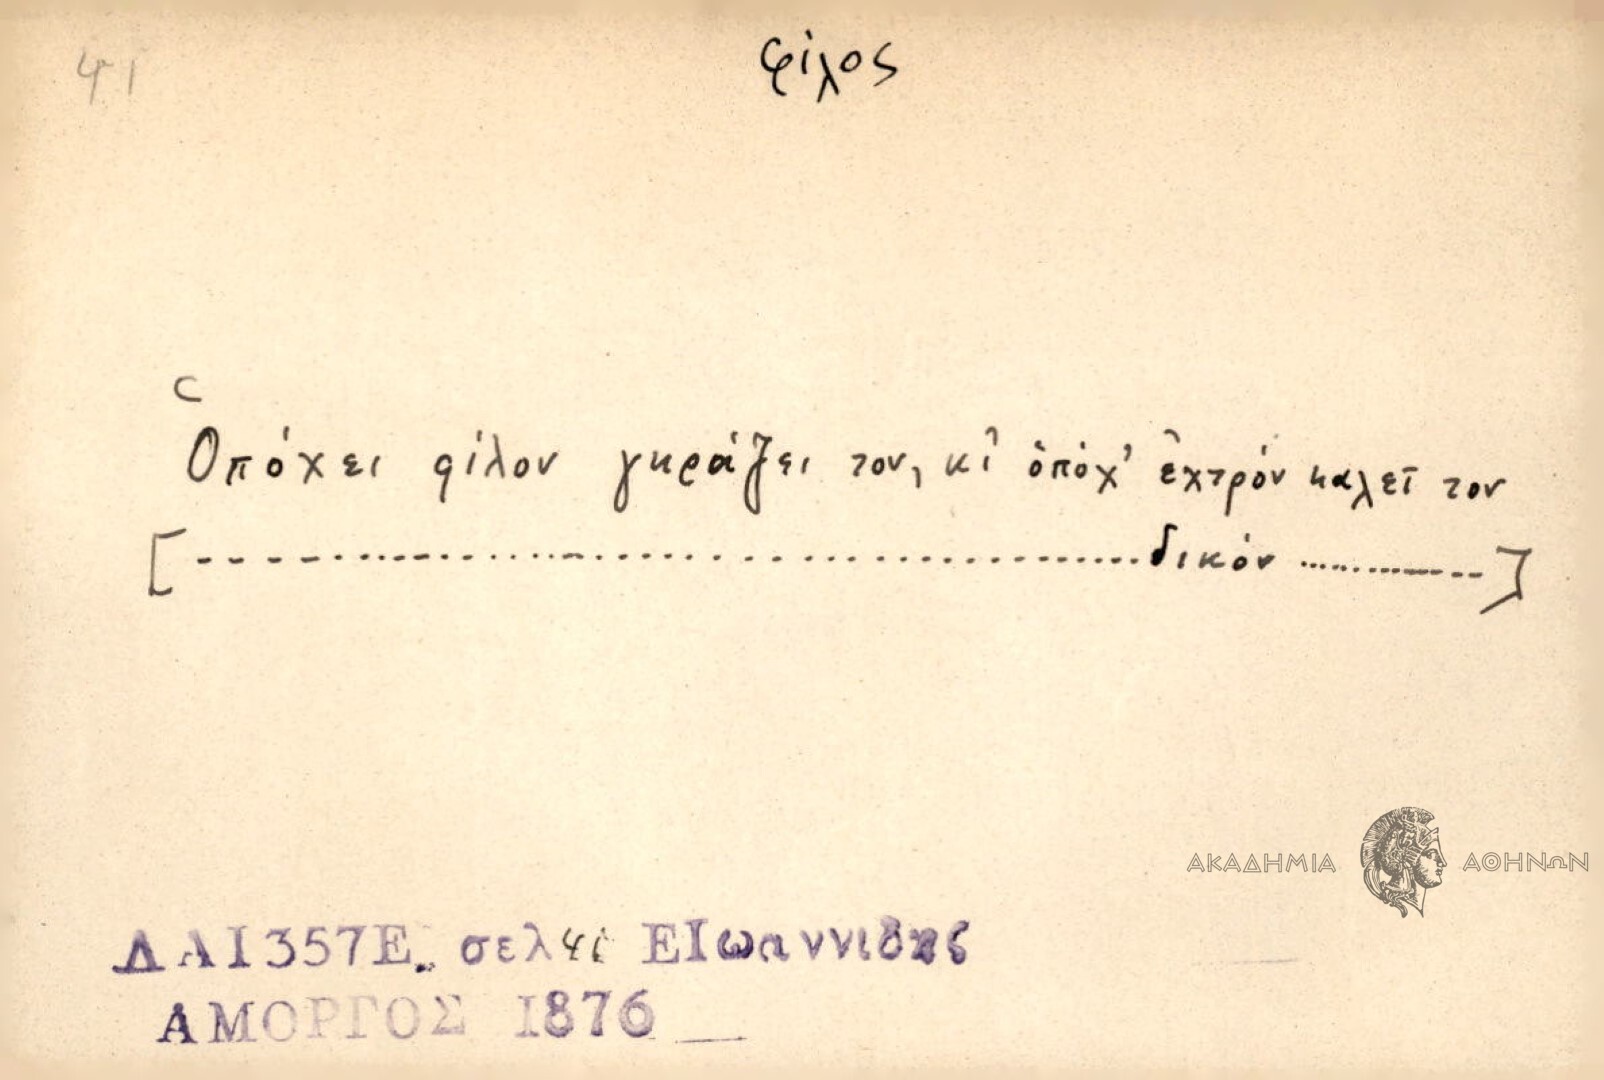 41
φίλος
Ὁπόχει φίλον γκράζει τον, κι' ὁπόχ' ἐχτρόν καλεῖ τον
[------------------------------ δικόν ------------]
ΑΚΑΔΗΜΙΑ ΑΘΗΝΩΝ
ΛΑ1357Ε. σελ 41 ΕΙωαννιδης
ΑΜΟΡΓΟΣ 1876